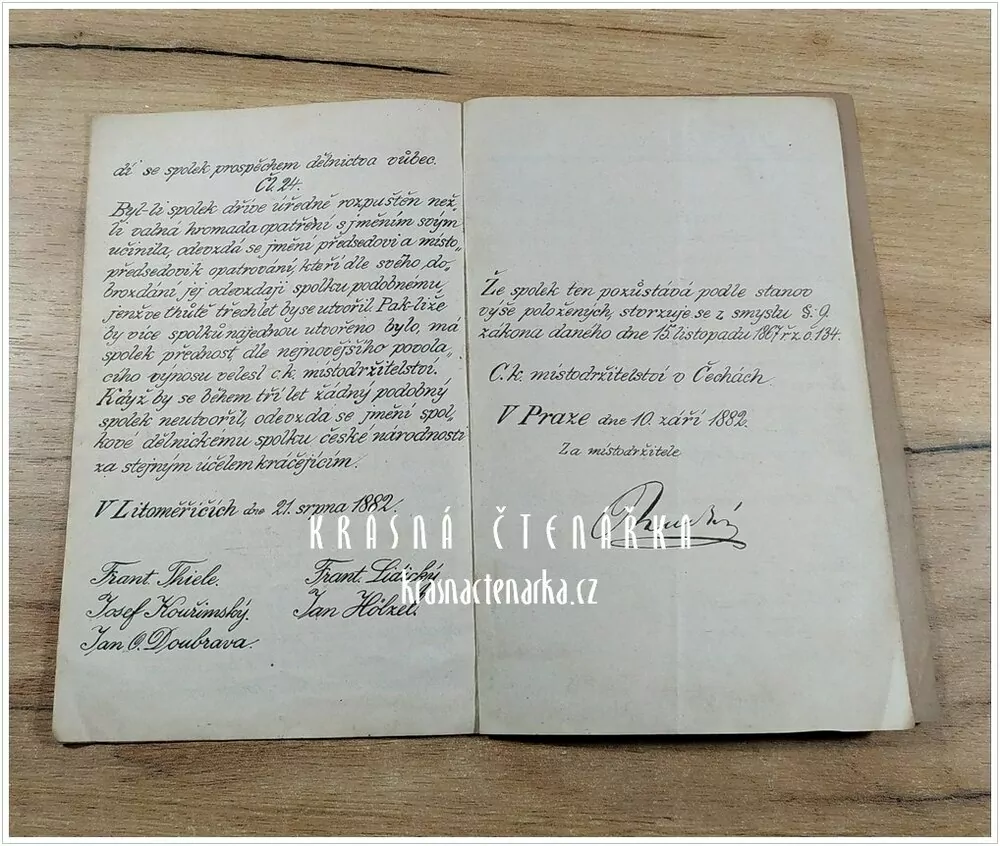 dí se spolek prospěchem dělnictva vůbec.
Čl. 24.
Byl-li spolek dříve úředně rozpuštěn než„
li valná hromada opatření s jměním svým
učinila, odevzdá se jmění předsedovi a místo„
předsedovi k opatrování, kteří dle svého do„
brozdání jej odevzdají spolku podobnému,
jenž ve lhůtě tří let by se utvořil. Pak-liže
by více spolků najednou utvořeno bylo, má
spolek přednost, dle nejnovějšího povola„
cího výnosu velesl. c. k. místodržitelství.
Když by se během tří let žádný podobný
spolek neutvořil, odevzda se jmění spol„
kové dělnickemu spolku české národnosti
za stejným účelem kráčejícím.
V Litoměřicích dne 21. srpna 1882.
Frant. Thiele.
Frant. Lidický
Josef Kouřimský.
Jan Hölzel.
Jan O. Doubrava.
Že spolek ten pozůstává podle stanov
výše položených, stvrzuje se z smyslu §: 9
zákona daného dne 15. listopadu 1867 ř. z. č. 134.
C. k. místodržitelství v Čechách.
V Praze dne 10. září 1882.
Za místodržitele
KRÁSNÁ ČTENÁŘKA
krasnactenarka.cz